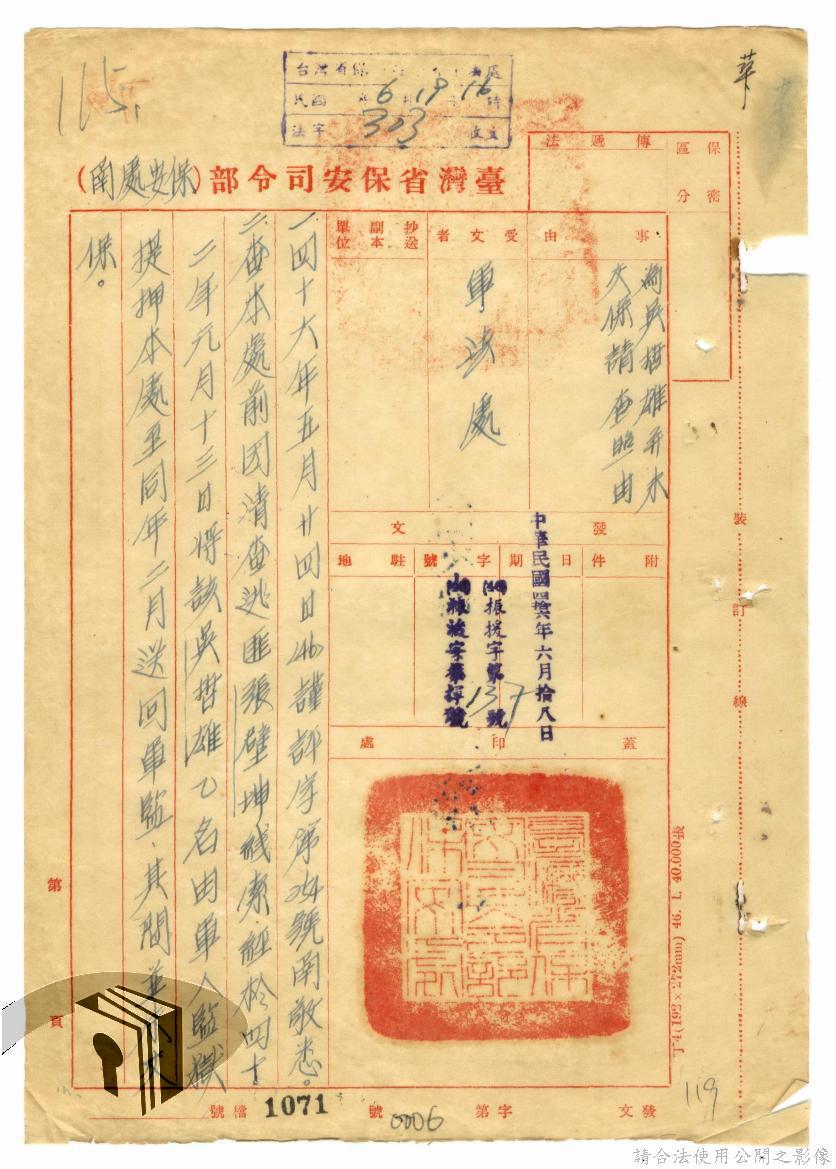 華
115
6 19 16
法字 303
臺灣省保安司令部(保安處函)
保密
區分
傳遞法
事由
為吳哲雄并未
交保請查照由
受文者
軍法處
抄送
副本
單位
發文
附件
日期
字號
駐地
中華民國肆陸年六月拾八日
振援字第137號
蓋印處
一、四十六年五月廿四日(46)謹評字第 號函敬悉。
二、查本處前因清查逃匪張壁坤線索,經於四十
二年元月十三日將該吳哲雄乙名由軍人監獄
提押本處至同年二月送回軍監,其間並
保。
裝
訂
線
第
頁
丁-4(192×272mm) 46. 1. 40,000張
發文
字第
0006
號
檔號
1071
119
請合法使用公開之影像